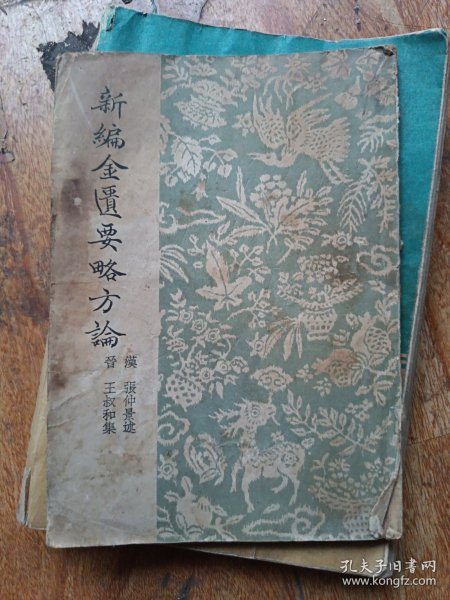 新編金匱要略方論
漢 張仲景述
晉 王叔和集
孔夫子旧书网
www.kongfz.com